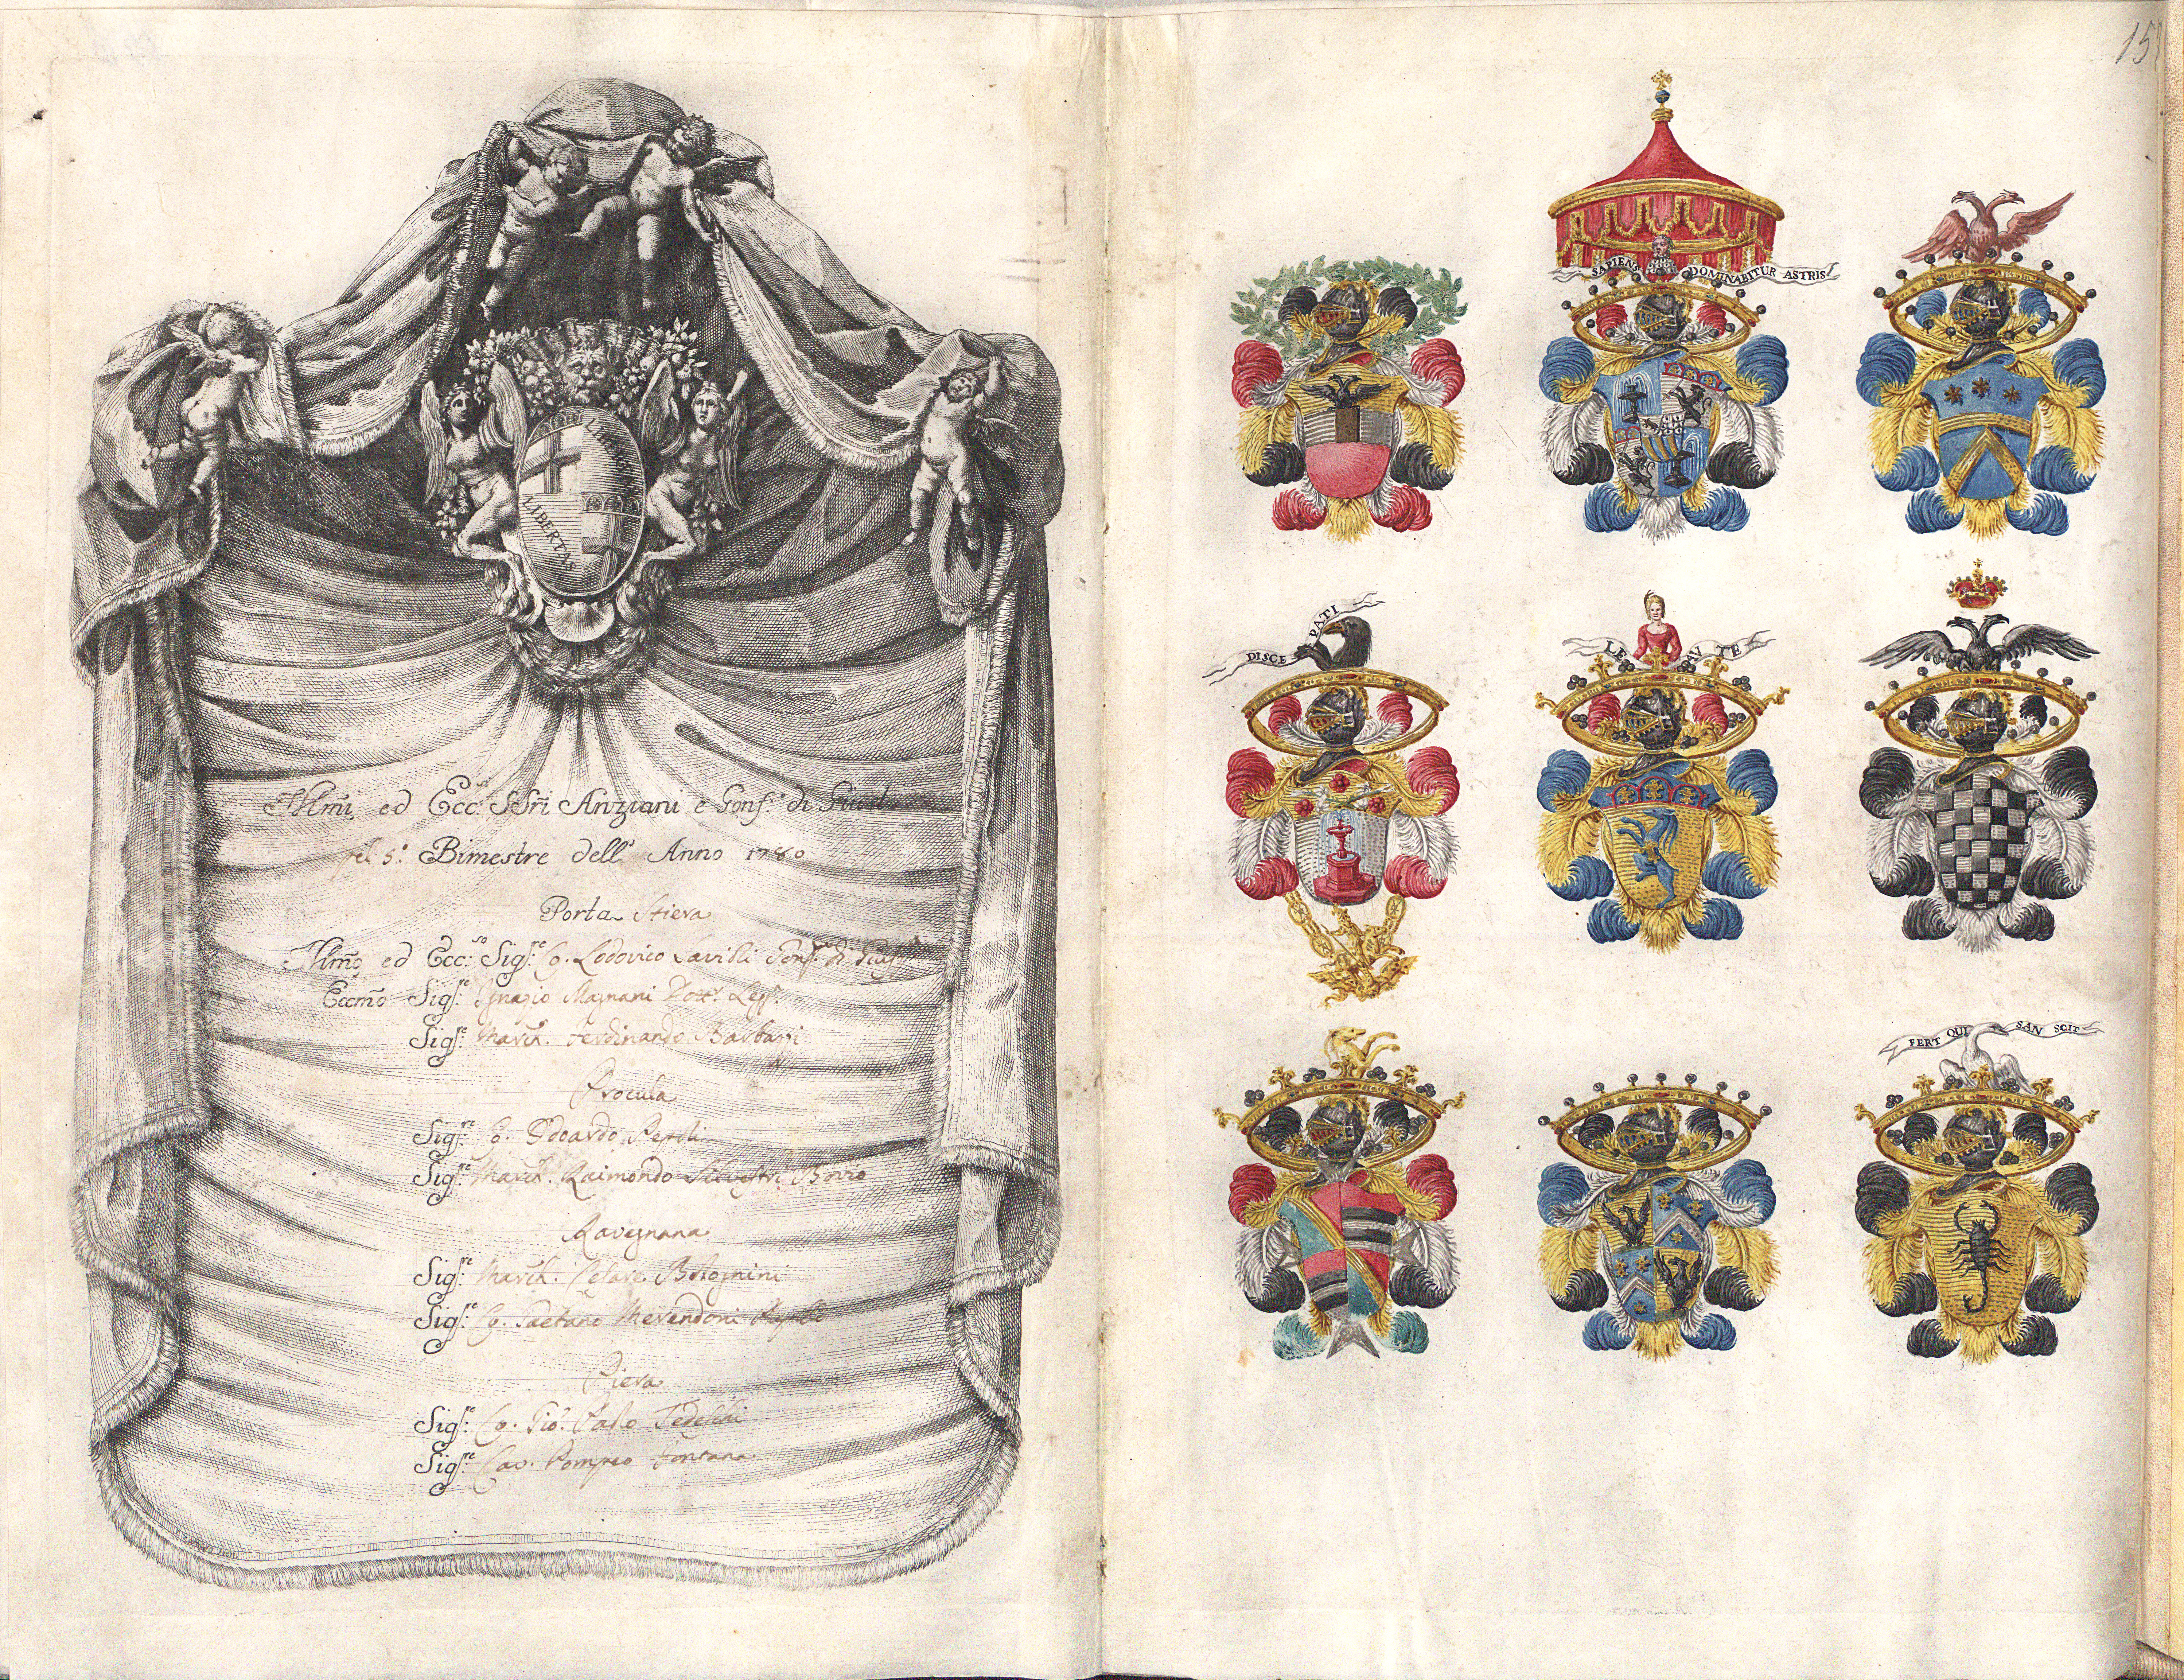 LIBERTAS
LIBERTAS
Illmi. ed Ecc:si SSri Anziani e Gonf:e di Giust:
pel 5:o Bimestre dell' Anno 1780
Porta Stiera
Illmo ed Ecc:so Sig:re Co. Lodovico Savioli Gonf:re di Giust:
Eccmo Sig:re Ignazio Magnani Dott. Legg.
Sig:re March. Ferdinando Barbazzi
Procula
Sig:re Co. Odoardo Pepoli
Sig:re March. Raimondo Silvestri Bovio
Ravegnana
Sig:re March. Cesare Bolognini
Sig:re Co. Gaetano Merendoni
Piera
Sig:re Co. Gio. Paolo Tedeschi
Sig:re Cav. Pompeo Fontana
15
SAPIENS DOMINABITUR ASTRIS
DISCE PATI
LE AV TE
FERT QUI SAN SCIT